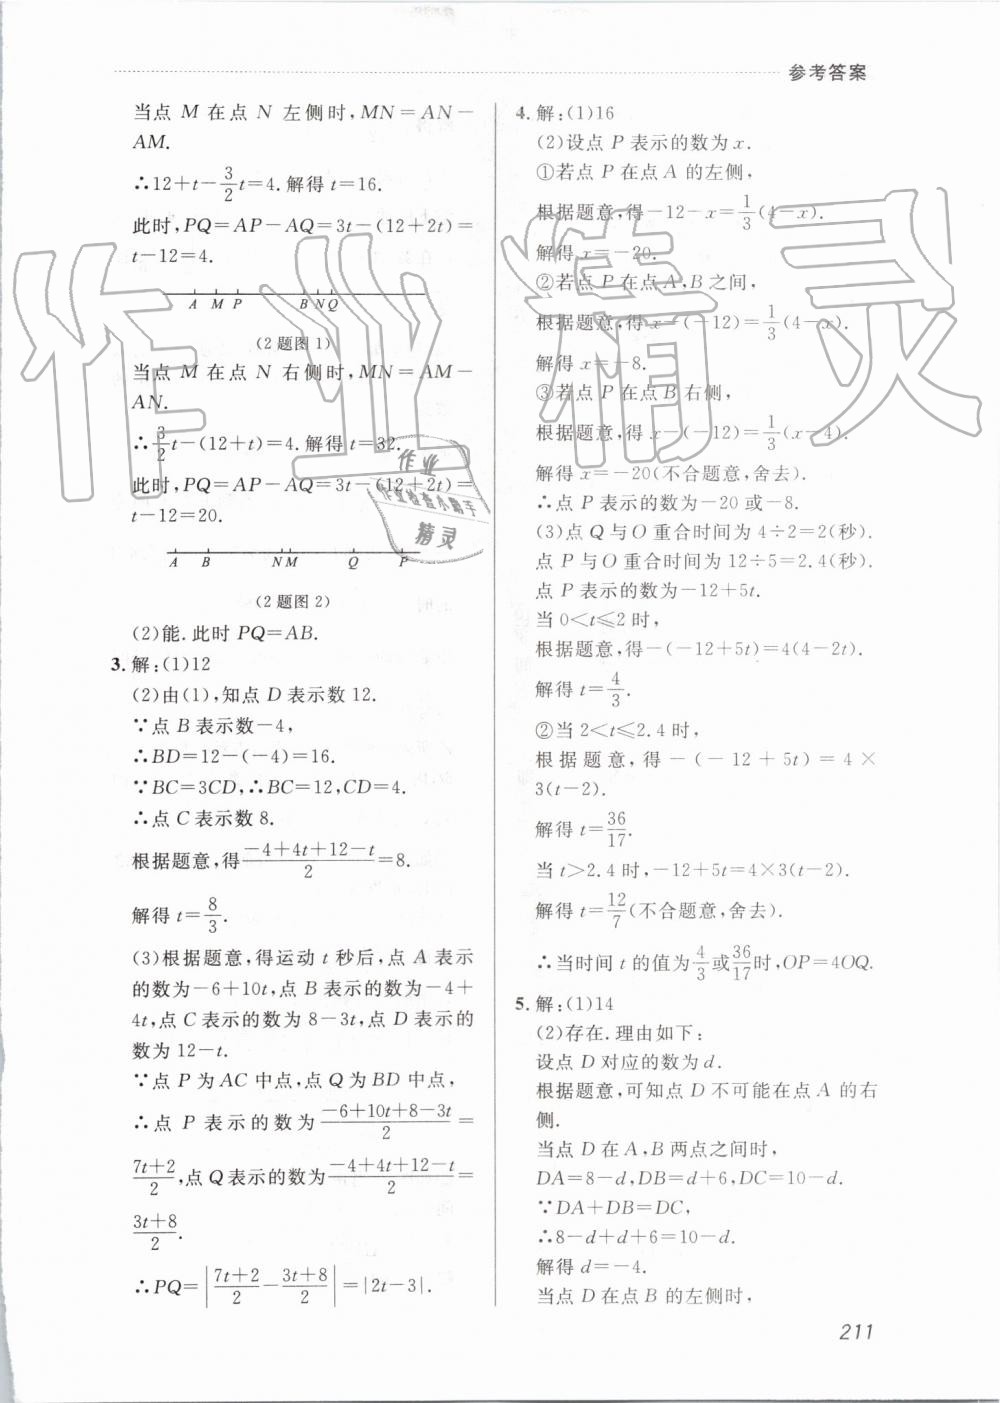 参考答案
当点 M 在点 N 左侧时,MN=AN-
AM.
∴12+t-3/2t=4.解得 t=16.
此时,PQ=AP-AQ=3t-(12+2t)=
t-12=4.
A M P B N Q
(2题图1)
当点 M 在点 N 右侧时,MN=AM-
AN.
∴3/2t-(12+t)=4.解得 t=32.
此时,PQ=AP-AQ=3t-(12+2t)=
t-12=20.
A B N M Q P
(2题图2)
(2)能.此时 PQ=AB.
3.解:(1)12
(2)由(1),知点 D 表示数 12.
∵点 B 表示数-4,
∴BD=12-(-4)=16.
∵BC=3CD,∴BC=12,CD=4.
∴点 C 表示数 8.
根据题意,得(-4+4t+12-t)/2=8.
解得 t=8/3.
(3)根据题意,得运动 t 秒后,点 A 表示
的数为-6+10t,点 B 表示的数为-4+
4t,点 C 表示的数为 8-3t,点 D 表示的
数为 12-t.
∵点 P 为 AC 中点,点 Q 为 BD 中点,
∴点 P 表示的数为(-6+10t+8-3t)/2=
(7t+2)/2,点 Q 表示的数为(-4+4t+12-t)/2=
(3t+8)/2.
∴PQ=|(7t+2)/2-(3t+8)/2|=|2t-3|.
4.解:(1)16
(2)设点 P 表示的数为 x.
①若点 P 在点 A 的左侧,
根据题意,得-12-x=1/3(4-x).
解得 x=-20.
②若点 P 在点 A,B 之间,
根据题意,得 x-(-12)=1/3(4-x).
解得 x=-8.
③若点 P 在点 B 右侧,
根据题意,得 x-(-12)=1/3(x-4).
解得 x=-20(不合题意,舍去).
∴点 P 表示的数为-20 或-8.
(3)点 Q 与 O 重合时间为 4÷2=2(秒).
点 P 与 O 重合时间为 12÷5=2.4(秒).
点 P 表示的数为-12+5t.
当 0<t≤2 时,
根据题意,得-(-12+5t)=4(4-2t).
解得 t=4/3.
②当 2<t≤2.4 时,
根据题意,得-(-12+5t)=4×
3(t-2).
解得 t=36/17.
当 t>2.4 时,-12+5t=4×3(t-2).
解得 t=12/7(不合题意,舍去).
∴当时间 t 的值为4/3或36/17时,OP=4OQ.
5.解:(1)14
(2)存在.理由如下:
设点 D 对应的数为 d.
根据题意,可知点 D 不可能在点 A 的右
侧.
当点 D 在 A,B 两点之间时,
DA=8-d,DB=d+6,DC=10-d.
∵DA+DB=DC,
∴8-d+d+6=10-d.
解得 d=-4.
当点 D 在点 B 的左侧时,
211
作业精灵
作业
作业检查小助手
精灵